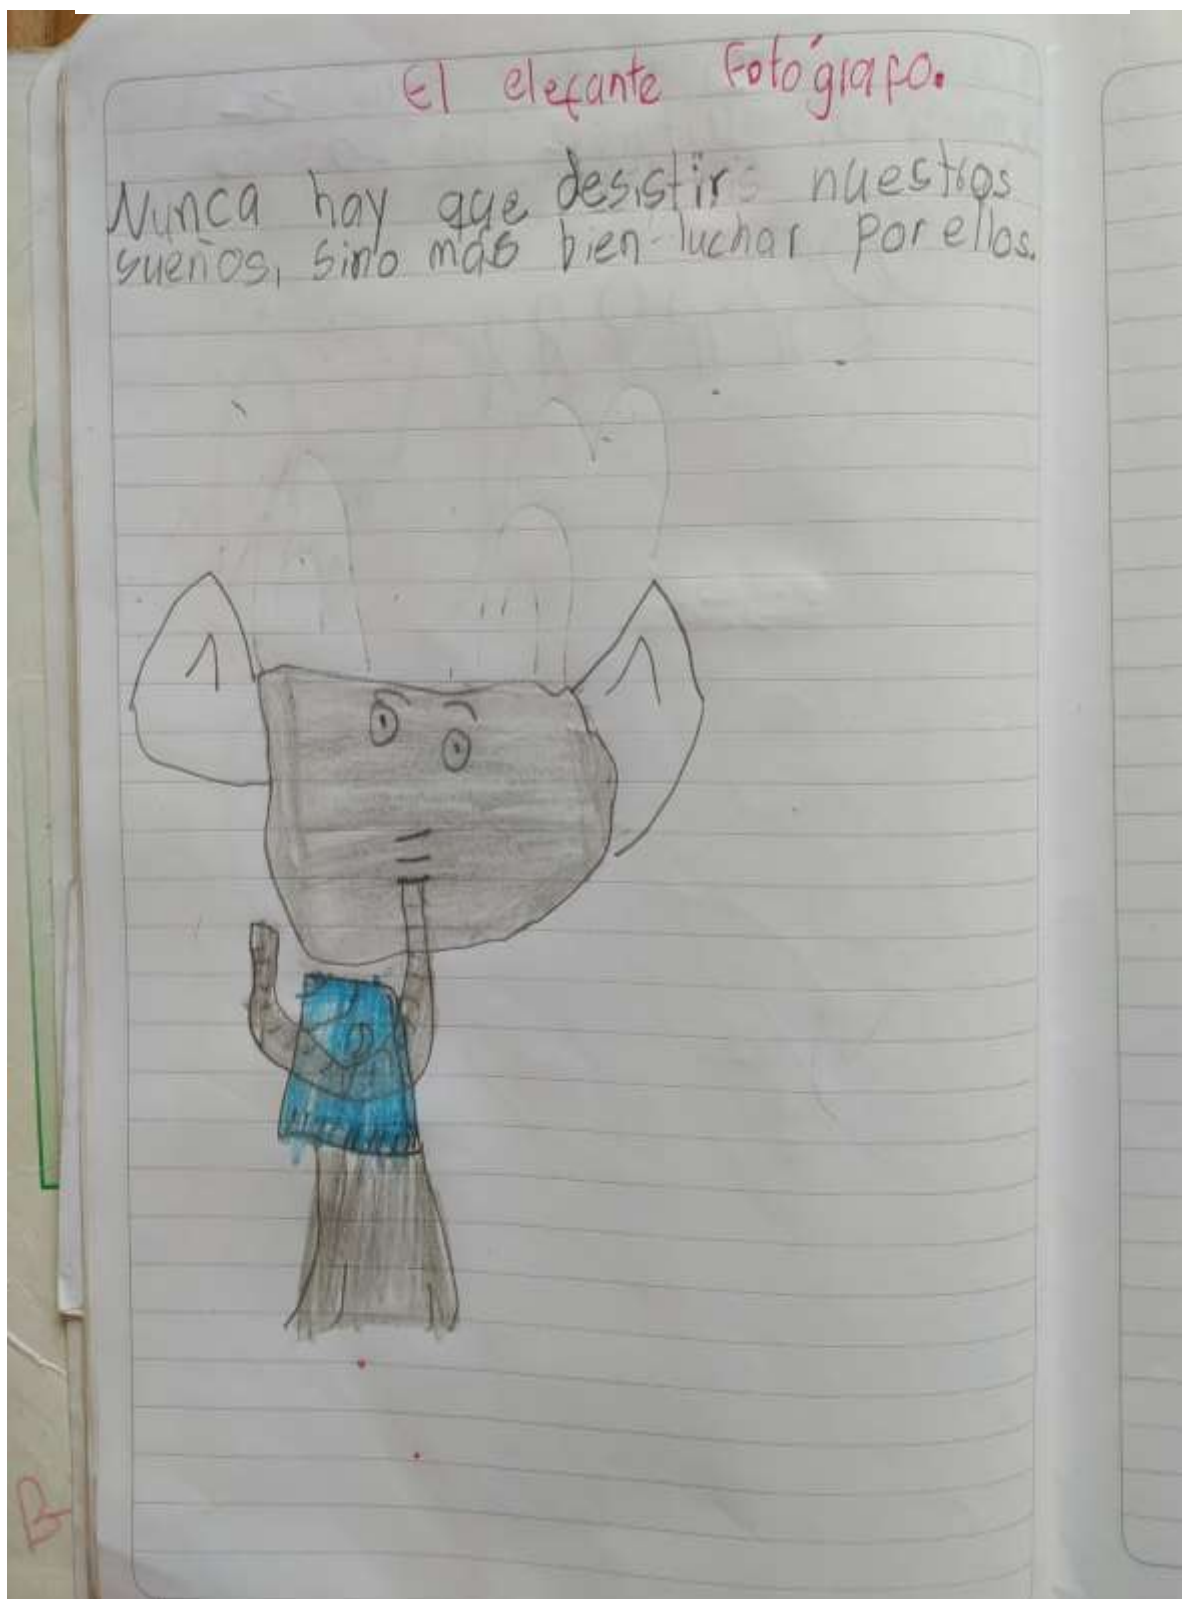 El elefante Fotógrafo.
Nunca hay que desistir nuestros
sueños, sino más bien luchar por ellos.